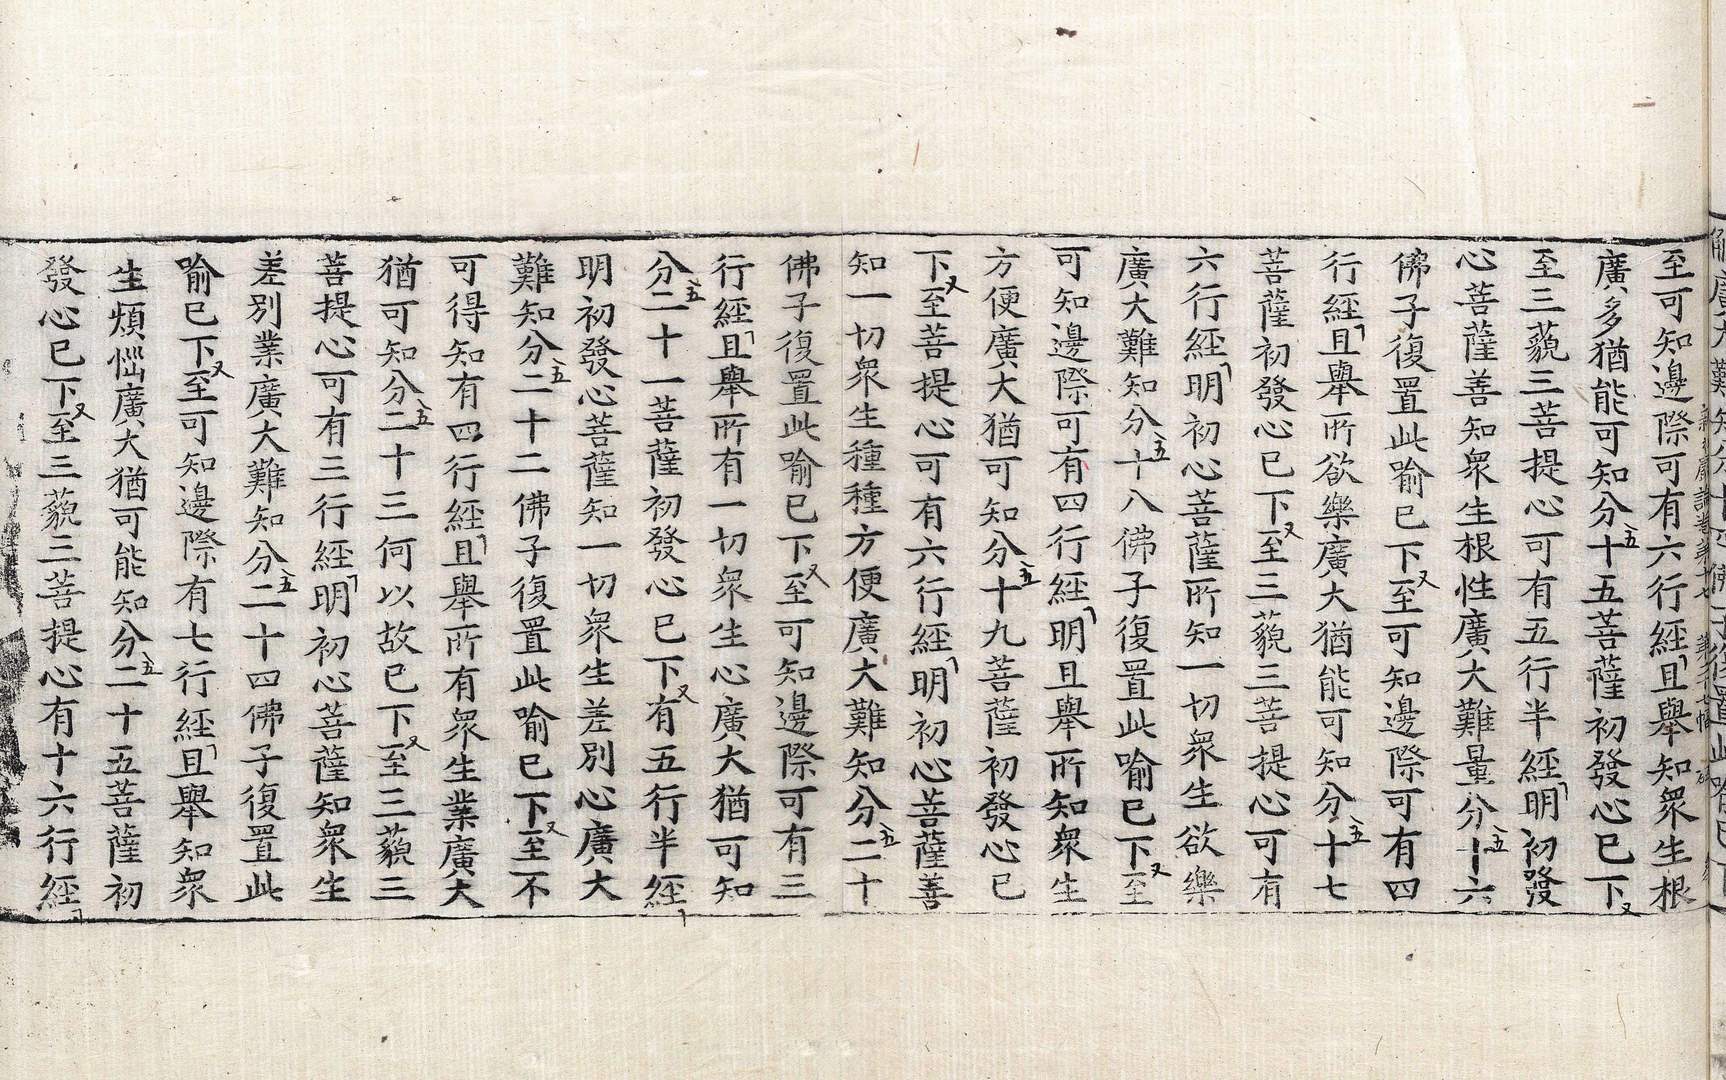 至可知邊際可有六行經且舉知衆生根
廣多猶能可知分十五菩薩初發心已下
至三藐三菩提心可有五行半經明初發
心菩薩善知衆生根性廣大難量分十六
佛子復置此喻已下至可知邊際可有四
行經且舉所欲樂廣大猶能可知分十七
菩薩初發心已下至三藐三菩提心可有
六行經明初心菩薩所知一切衆生欲樂
廣大難知分十八佛子復置此喻已下至
可知邊際可有四行經明且舉所知衆生
方便廣大猶可知分十九菩薩初發心已
下至菩提心可有六行經明初心菩薩善
知一切衆生種種方便廣大難知分二十
佛子復置此喻已下至可知邊際可有三
行經且舉所有一切衆生心廣大猶可知
分二十一菩薩初發心已下有五行半經
明初發心菩薩知一切衆生差別心廣大
難知分二十二佛子復置此喻已下至不
可得知有四行經且舉所有衆生業廣大
猶可知分二十三何以故已下至三藐三
菩提心可有三行經明初心菩薩知衆生
差別業廣大難知分二十四佛子復置此
喻已下至可知邊際有七行經且舉知衆
生煩惱廣大猶可能知分二十五菩薩初
發心已下至三藐三菩提心有十六行經